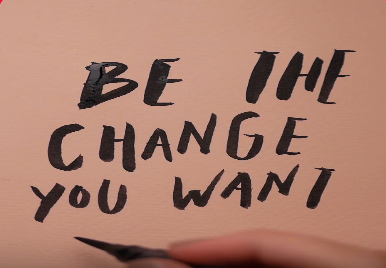 BE THE
CHANGE
YOU WANT